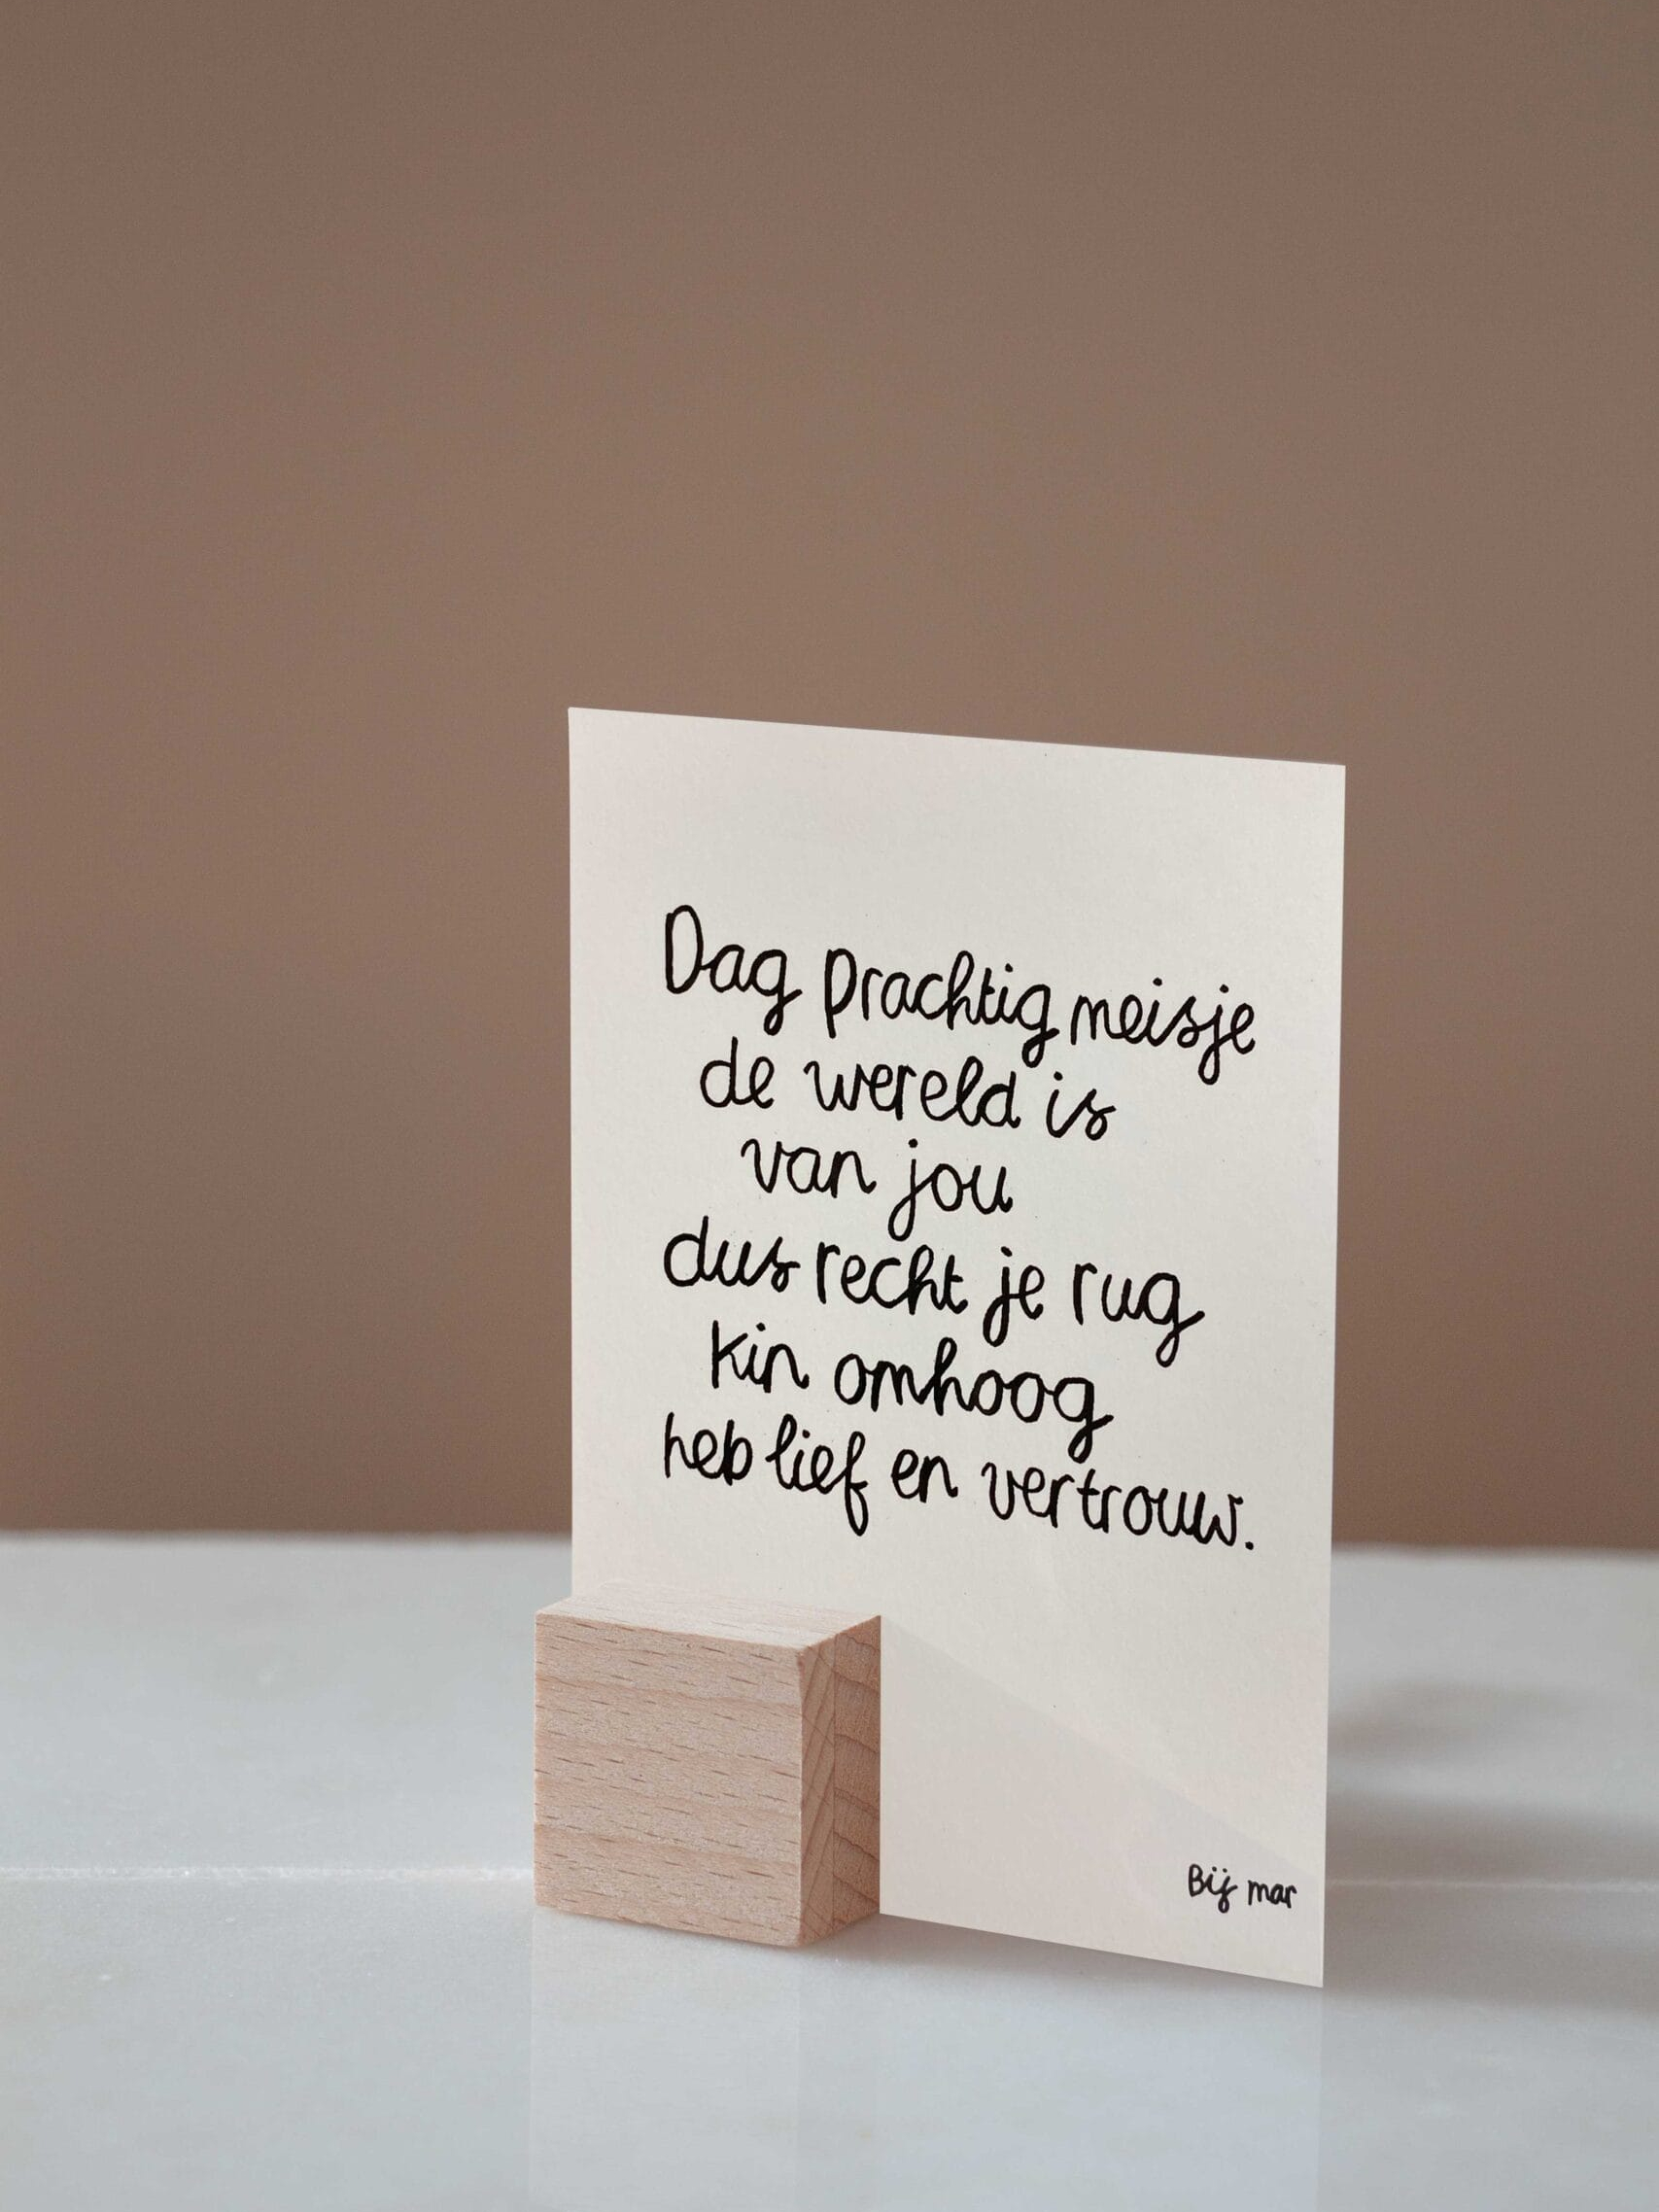 Dag prachtig meisje
de wereld is
van jou
dus recht je rug
kin omhoog
heb lief en vertrouw.
Bij mar